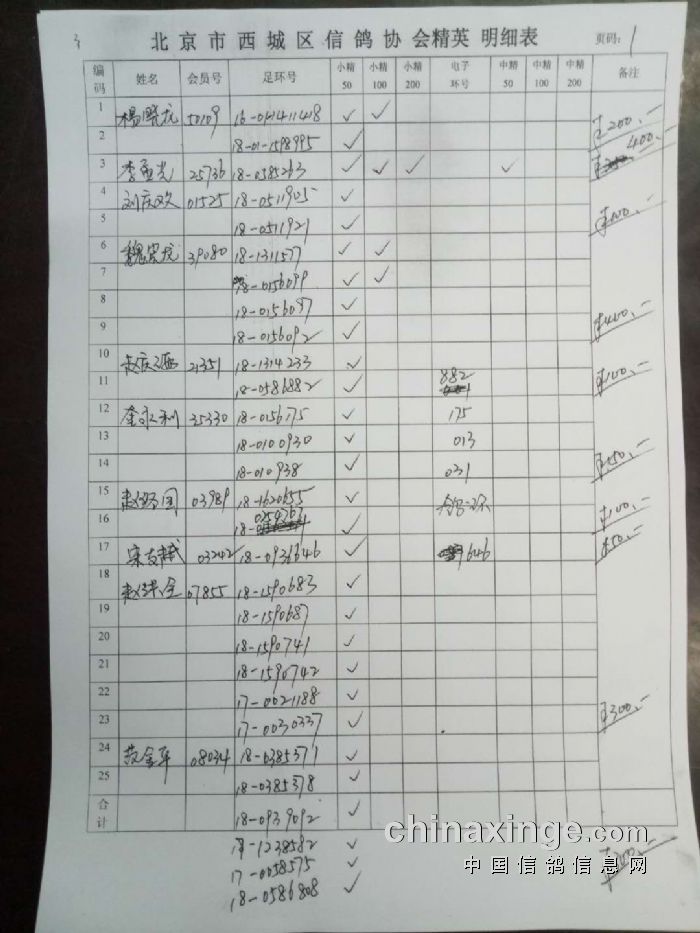 北京市西城区信鸽协会精英 明细表
页码: 1
编码 姓名 会员号 足环号 小精50 小精100 小精200 电子环号 中精50 中精100 中精200 备注
1 杨晓龙 50109 ✓ ✓
2 18-01-1598995 ✓ ¥200,-
3 25736 18-0585263 ✓ ✓ ✓ ✓ 400,-
4 刘庆欢 01525 18-0511905 ✓
5 18-0511921 ✓ ¥100,-
6 39080 18-1311577 ✓ ✓
7 18-0156099 ✓ ✓
8 18-0156097 ✓
9 18-0156092 ✓ ¥400,-
10 21351 18-1314233 ✓
11 18-0586882 ✓ 882 ¥100,-
12 35330 18-0156175 ✓ 175
13 18-0100930 ✓ 013
14 18-010938 ✓ 031 ¥150,-
15 03989 18-1620655 ✓
16 18- 0250763 ✓ ¥100,-
17 03242 18-0936646 ✓ 646 ¥50,-
18 07855 18-1590683 ✓
19 18-1590687 ✓
20 18-1590741 ✓
21 18-1590742 ✓
22 17-0021188 ✓
23 17-0030337 ✓ ¥300,-
24 08034 18-0385371 ✓
25 18-0385378 ✓
合计 18-0939092 ✓
18-1238582 ✓
17-0058575 ✓
18-0586808 ✓
chinaxinge.com
中国信鸽信息网